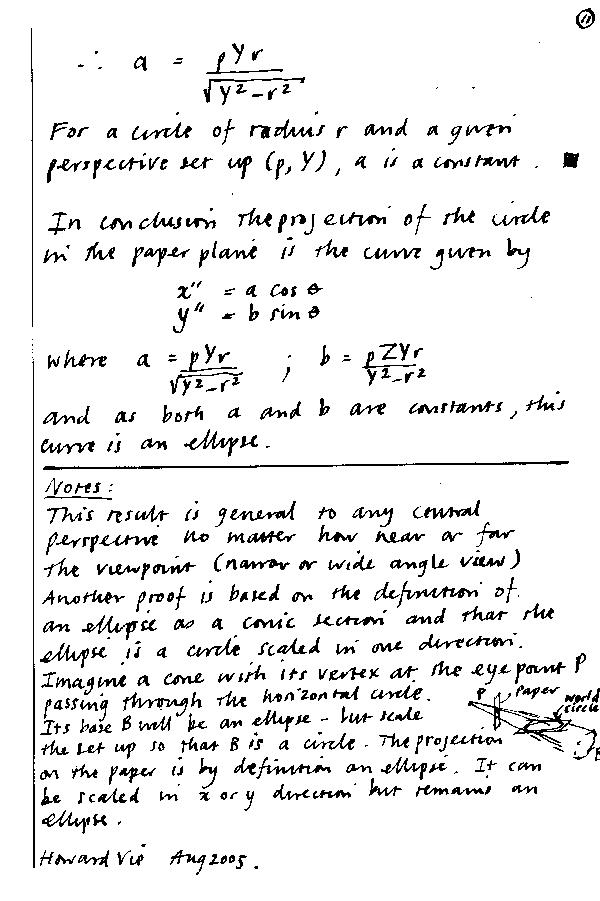 11
∴ a = pYr / √(Y² − r²)
For a circle of radius r and a given
perspective set up (p, Y), a is a constant. ■
In conclusion the projection of the circle
in the paper plane is the curve given by
x″ = a cos θ
y″ = b sin θ
where a = pYr / √(Y² − r²) ; b = pZYr / Y² − r²
and as both a and b are constants, this
curve is an ellipse.
Notes:
This result is general to any central
perspective no matter how near or far
the viewpoint (narrow or wide angle view)
Another proof is based on the definition of
an ellipse as a conic section and that the
ellipse is a circle scaled in one direction.
Imagine a cone with its vertex at the eye point P
passing through the horizontal circle.
Its base B will be an ellipse - but scale
the set up so that B is a circle. The projection
on the paper is by definition an ellipse. It can
be scaled in x or y direction but remains an
ellipse.
P Paper
world
circle
B
Howard Aug 2005.